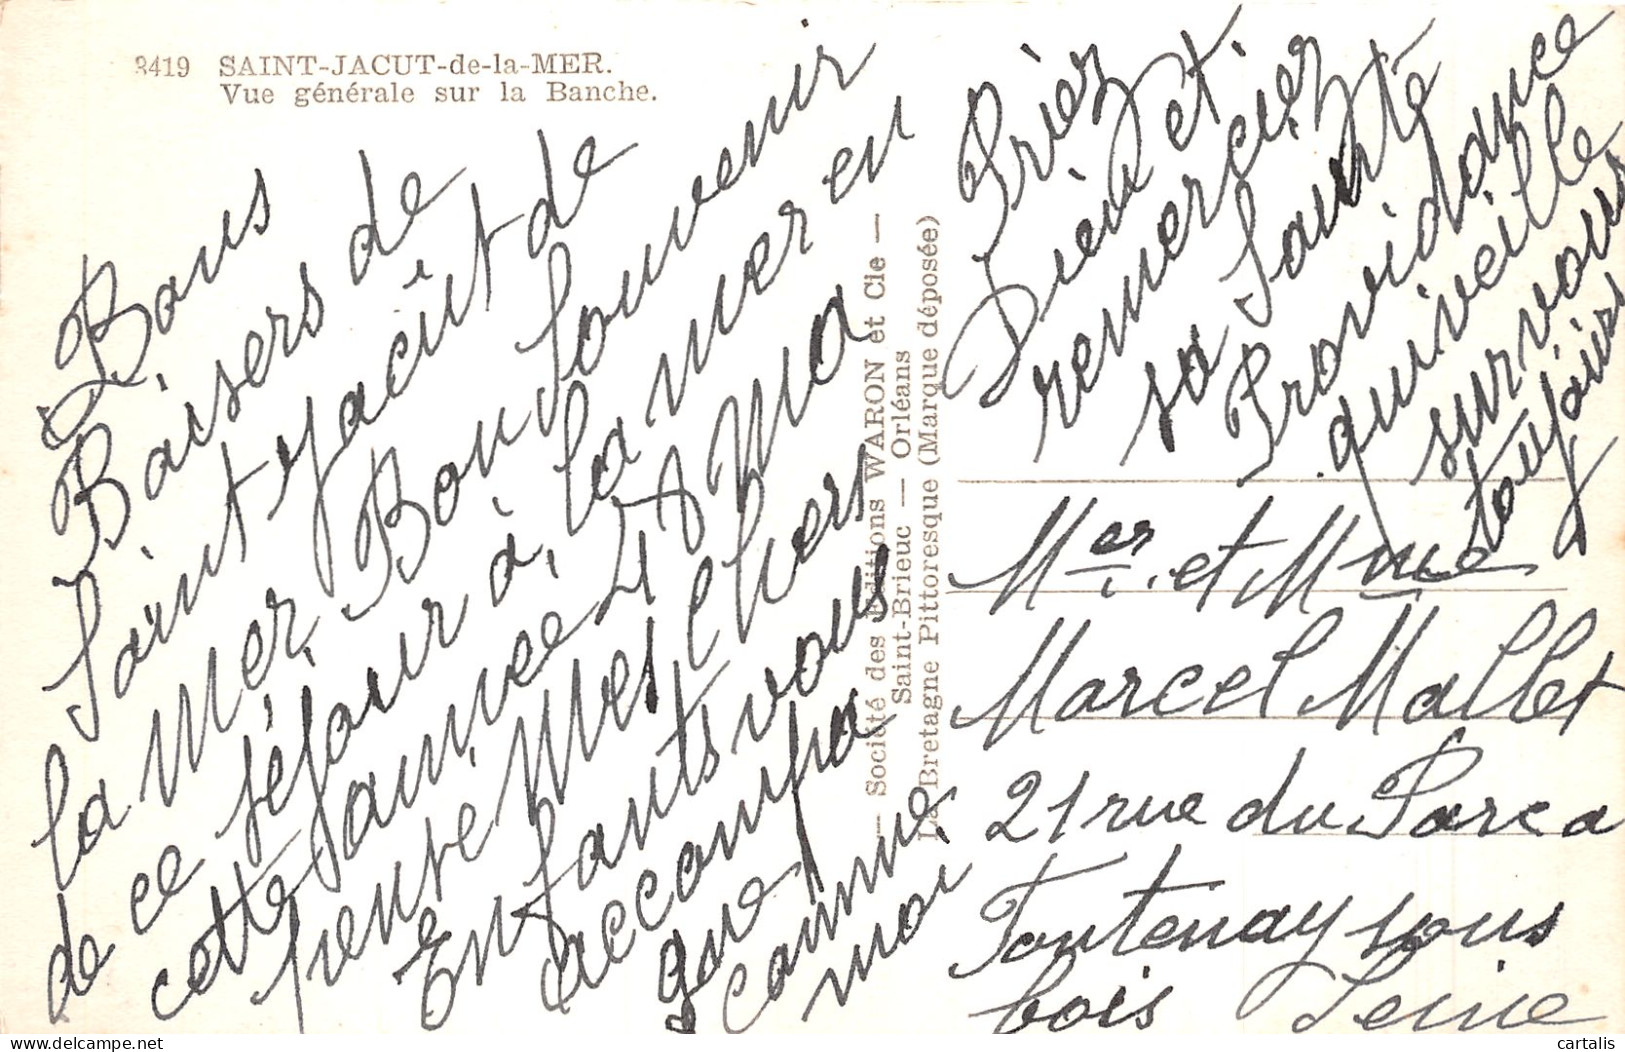 3419 SAINT-JACUT-de-la-MER.
Vue générale sur la Banche.
Bons
Baisers de
Saint Jacût de
la mer. Bon Souvenir
de ce séjour à la mer en
cette année 48 Ma
pensée Mes Chers
Enfants vous
accompa
gne
comme
moi
Priez
Dieu et
remerciez
sa Sainte
Providance
qui veille
sur vous
toujours
— Société des Editions WARON et Cie —
Saint-Brieuc — Orléans
La Bretagne Pittoresque (Marque déposée)
Mer. et Mme
Marcel Mallet
21 rue du Parc a
Fontenay sous
bois Seine
cartalis delcampe.net